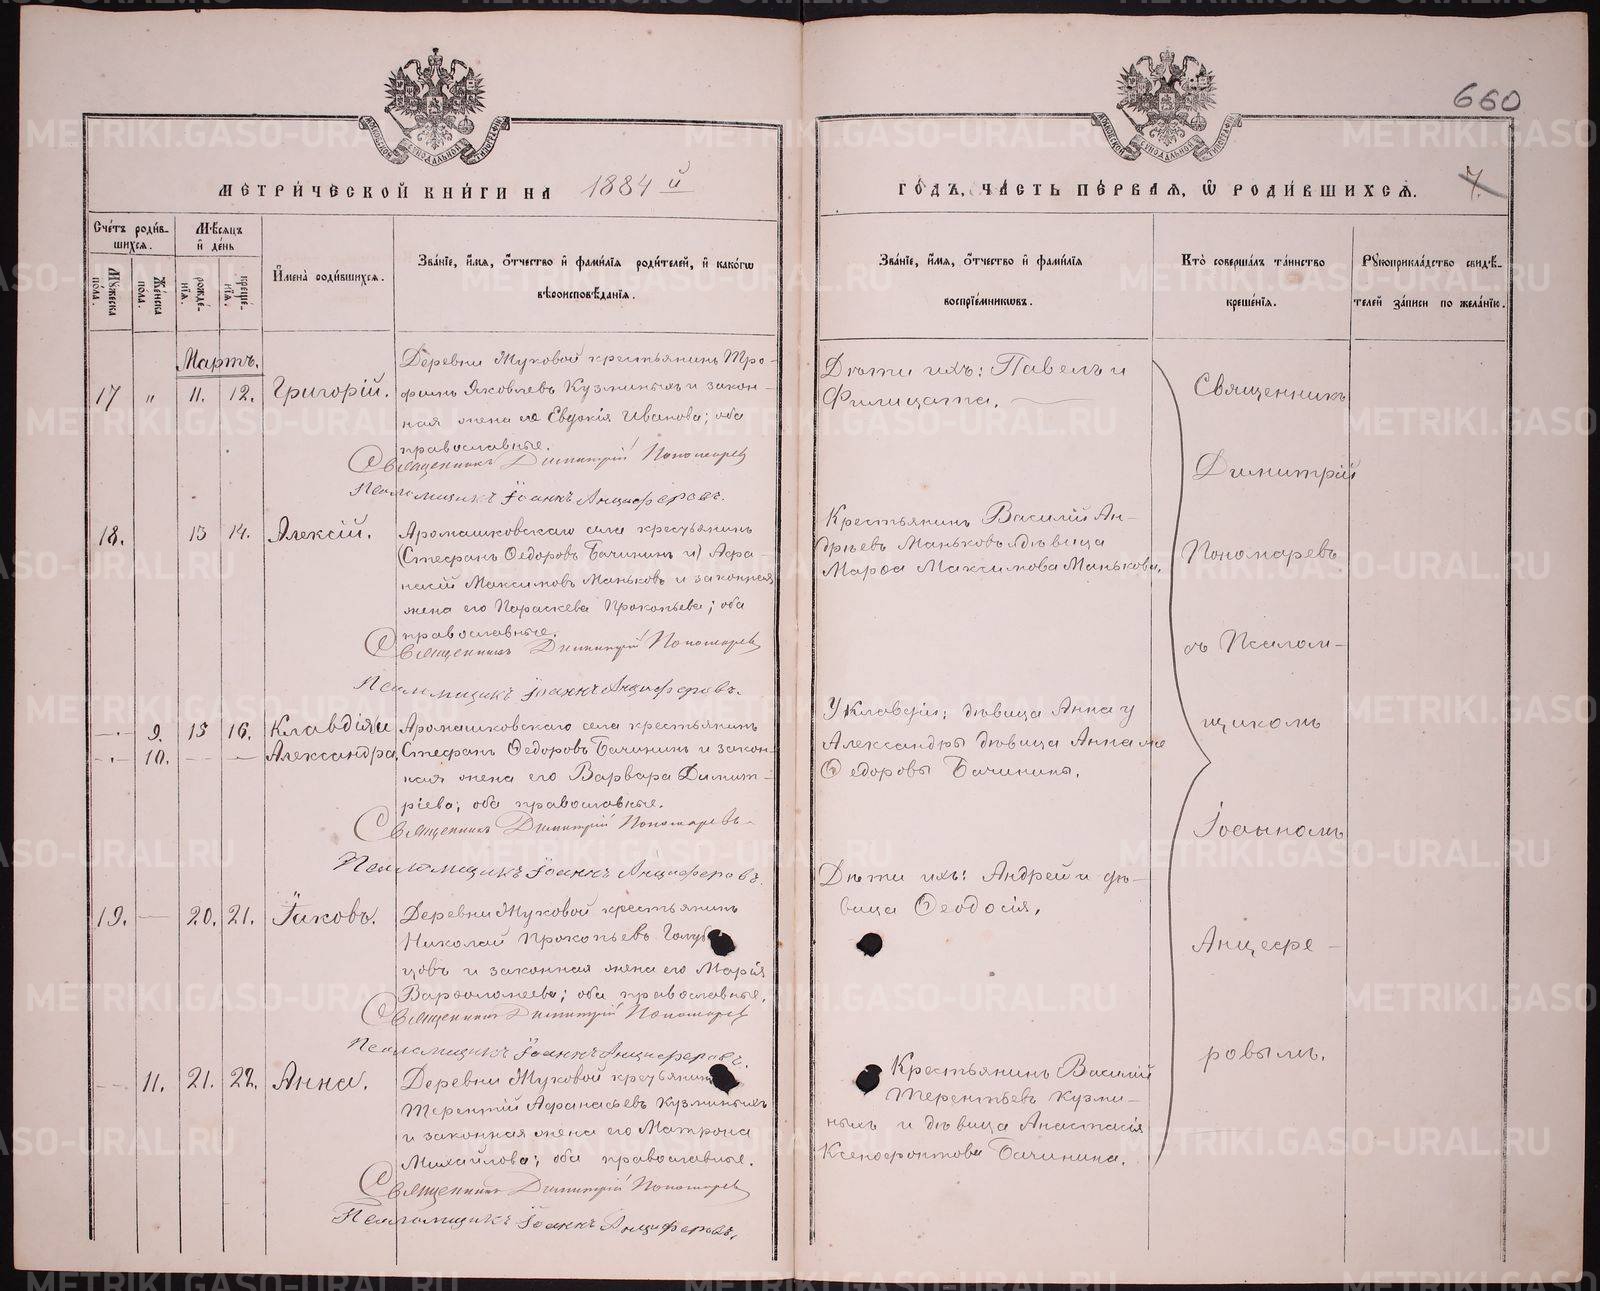 660
МЕТРИ́ЧЕСКОЙ КНИ́ГИ НА 1884й
ГО́ДЪ, ЧА́СТЬ ПЕ́РВАЯ, Ѡ РОДИ́ВШИХСЯ.
7.
Сче́тъ роди́в-
шихся.
Мꙋ́жеска пола.
Же́нска пола.
Мѣ́сяцъ
и де́нь
рожде́-
нїя.
креще́-
нїя.
Имена̀ родившихся.
Зва́нїе, и́мя, ѻ́тчество и фами́лїя роди́телей, и како́гѡ
вѣроисповѣ́данїя.
Зва́нїе, и́мя, ѻ́тчество и фами́лїя
воспрїе́мникѡвъ.
Кто̀ соверша́лъ та́инство
креще́нїя.
Рꙋкоприкла́дство свидѣ́-
телей за́писи по жела́нїю.
Мартъ.
17 „ 11. 12. Григорій.
Деревни Жуковой крестьянинъ Тро-
фимъ Яковлевъ Кузминыхъ и закон-
ная жена его Евдокія Иванова; оба
православные.
Священникъ Димитрій Пономарев
Псаломщикъ Іоаннъ Анциферовъ.
Дѣти ихъ: Павелъ и
Филицата.
18. 13 14. Алексій.
Аромашковскаго села крестьянинъ
(Стефанъ Ѳедоровъ Бачининъ и) Аѳа-
насій Максимовъ Маньковъ и законная
жена его Параскева Прокопьева; оба
православные.
Священникъ Димитрій Пономарев
Псаломщикъ Іоаннъ Анциферовъ.
Крестьянинъ Василій Ан-
дрѣевъ Маньковъ дѣвица
Марѳа Максимова Манькова.
9. 15 16. Клавдія и
10. Александра.
Аромашковскаго села крестьянинъ
Стефанъ Ѳедоровъ Бачининъ и закон-
ная жена его Варвара Димит-
ріева; оба православные.
Священникъ Димитрій Пономаревъ
Псаломщикъ Іоаннъ Анциферовъ.
У Клавдіи: дѣвица Анна у
Александры дѣвица Анна же
Ѳедоровы Бачинины.
19. — 20. 21. Іаковъ.
Деревни Жуковой крестьянинъ
Николай Прокопьевъ Голуб
цовъ и законная жена его Марія
Варѳоломеева; оба православные.
Священникъ Димитрій Пономарев
Псаломщикъ Іоаннъ Анциферовъ.
Дѣти ихъ: Андрей и дѣ-
вица Ѳеодосія.
— 11. 21. 22. Анна.
Деревни Жуковой крестьянин
Терентій Аѳанасьевъ Кузминыхъ
и законная жена его Матрона
Михайлова; оба православные.
Священникъ Димитрій Пономарев
Псаломщикъ Іоаннъ Анциферовъ.
Крестьянинъ Василій
Терентьевъ Кузми-
ныхъ и дѣвица Анастасія
Ксенофонтова Бачинина.
Священникъ
Димитрій
Пономаревъ
съ Псалом-
щикомъ
Іоанномъ
Анцефе-
ровымъ.
METRIKI.GASO-URAL.RU